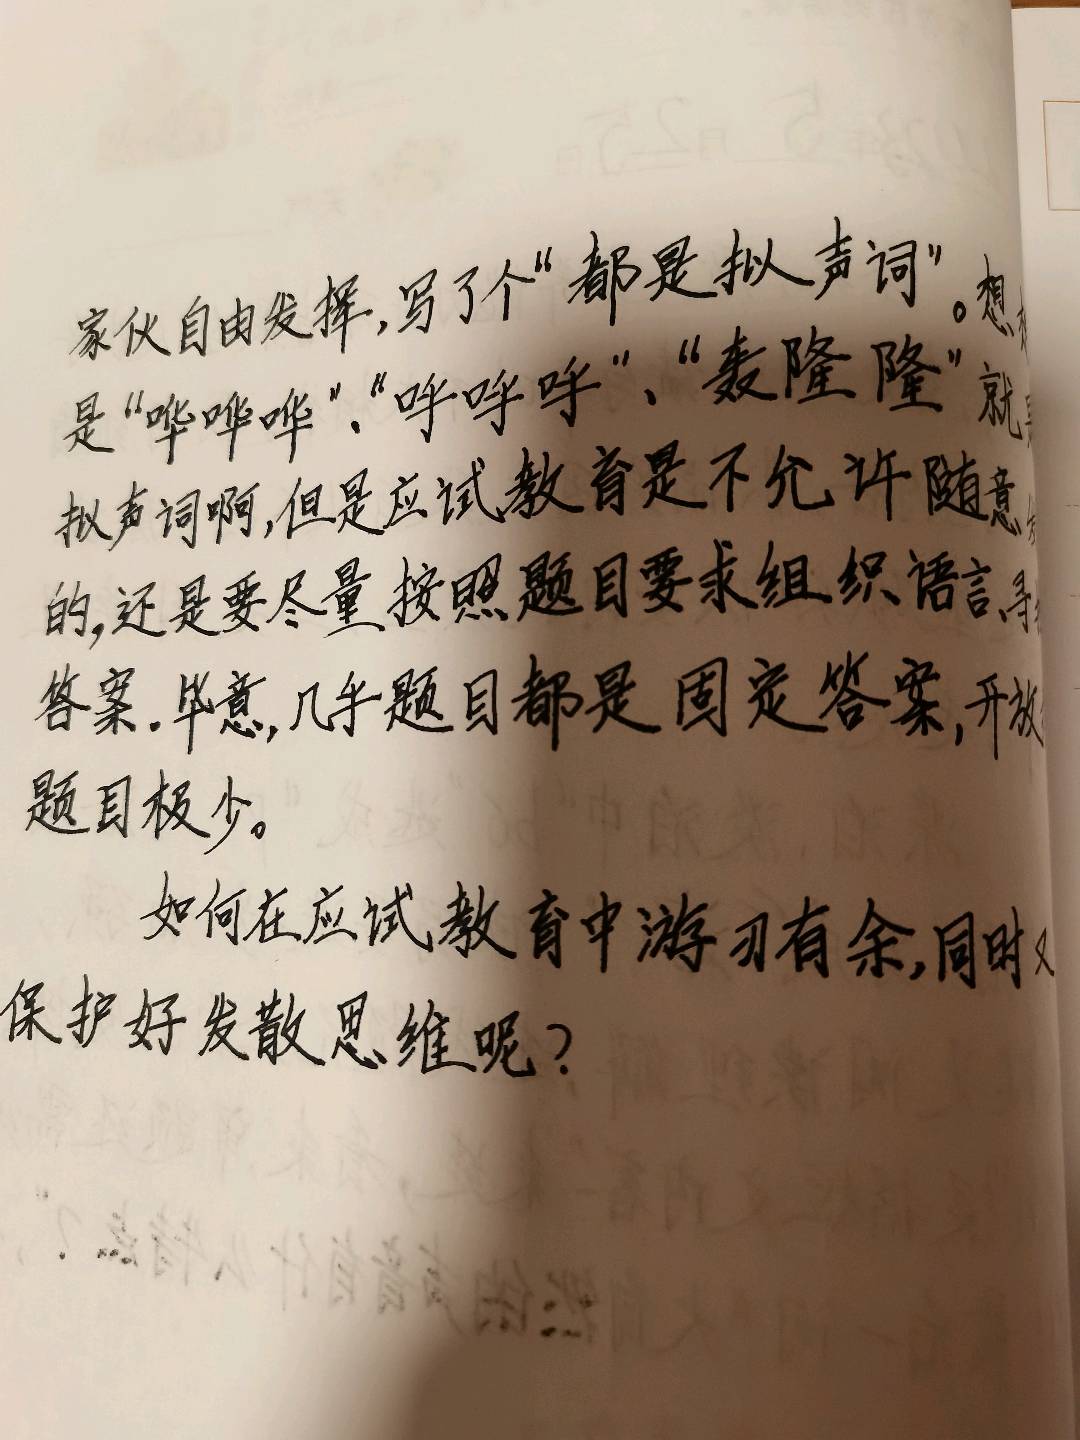 家伙自由发挥,写了个“都是拟声词”。想
是“哗哗哗”、“呼呼呼”、“轰隆隆”就
拟声词啊,但是应试教育是不允许随意
的,还是要尽量按照题目要求组织语言、寻
答案.毕意,几乎题目都是固定答案,开放
题目极少。
如何在应试教育中游刃有余,同时又
保护好发散思维呢?